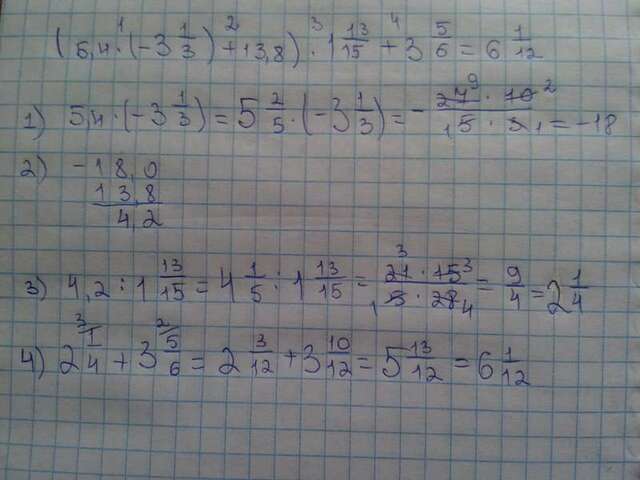 (5,4 · (-3 1/3) + 13,8) : 1 13/15 + 3 5/6 = 6 1/12
1) 5,4 · (-3 1/3) = 5 2/5 · (-3 1/3) = - 27 · 10 / 5 · 3 = -18
2) -18,0
13,8
4,2
3) 4,2 : 1 13/15 = 4 1/5 : 1 13/15 = 21 · 15 / 5 · 28 = 9/4 = 2 1/4
4) 2 1/4 + 3 5/6 = 2 3/12 + 3 10/12 = 5 13/12 = 6 1/12